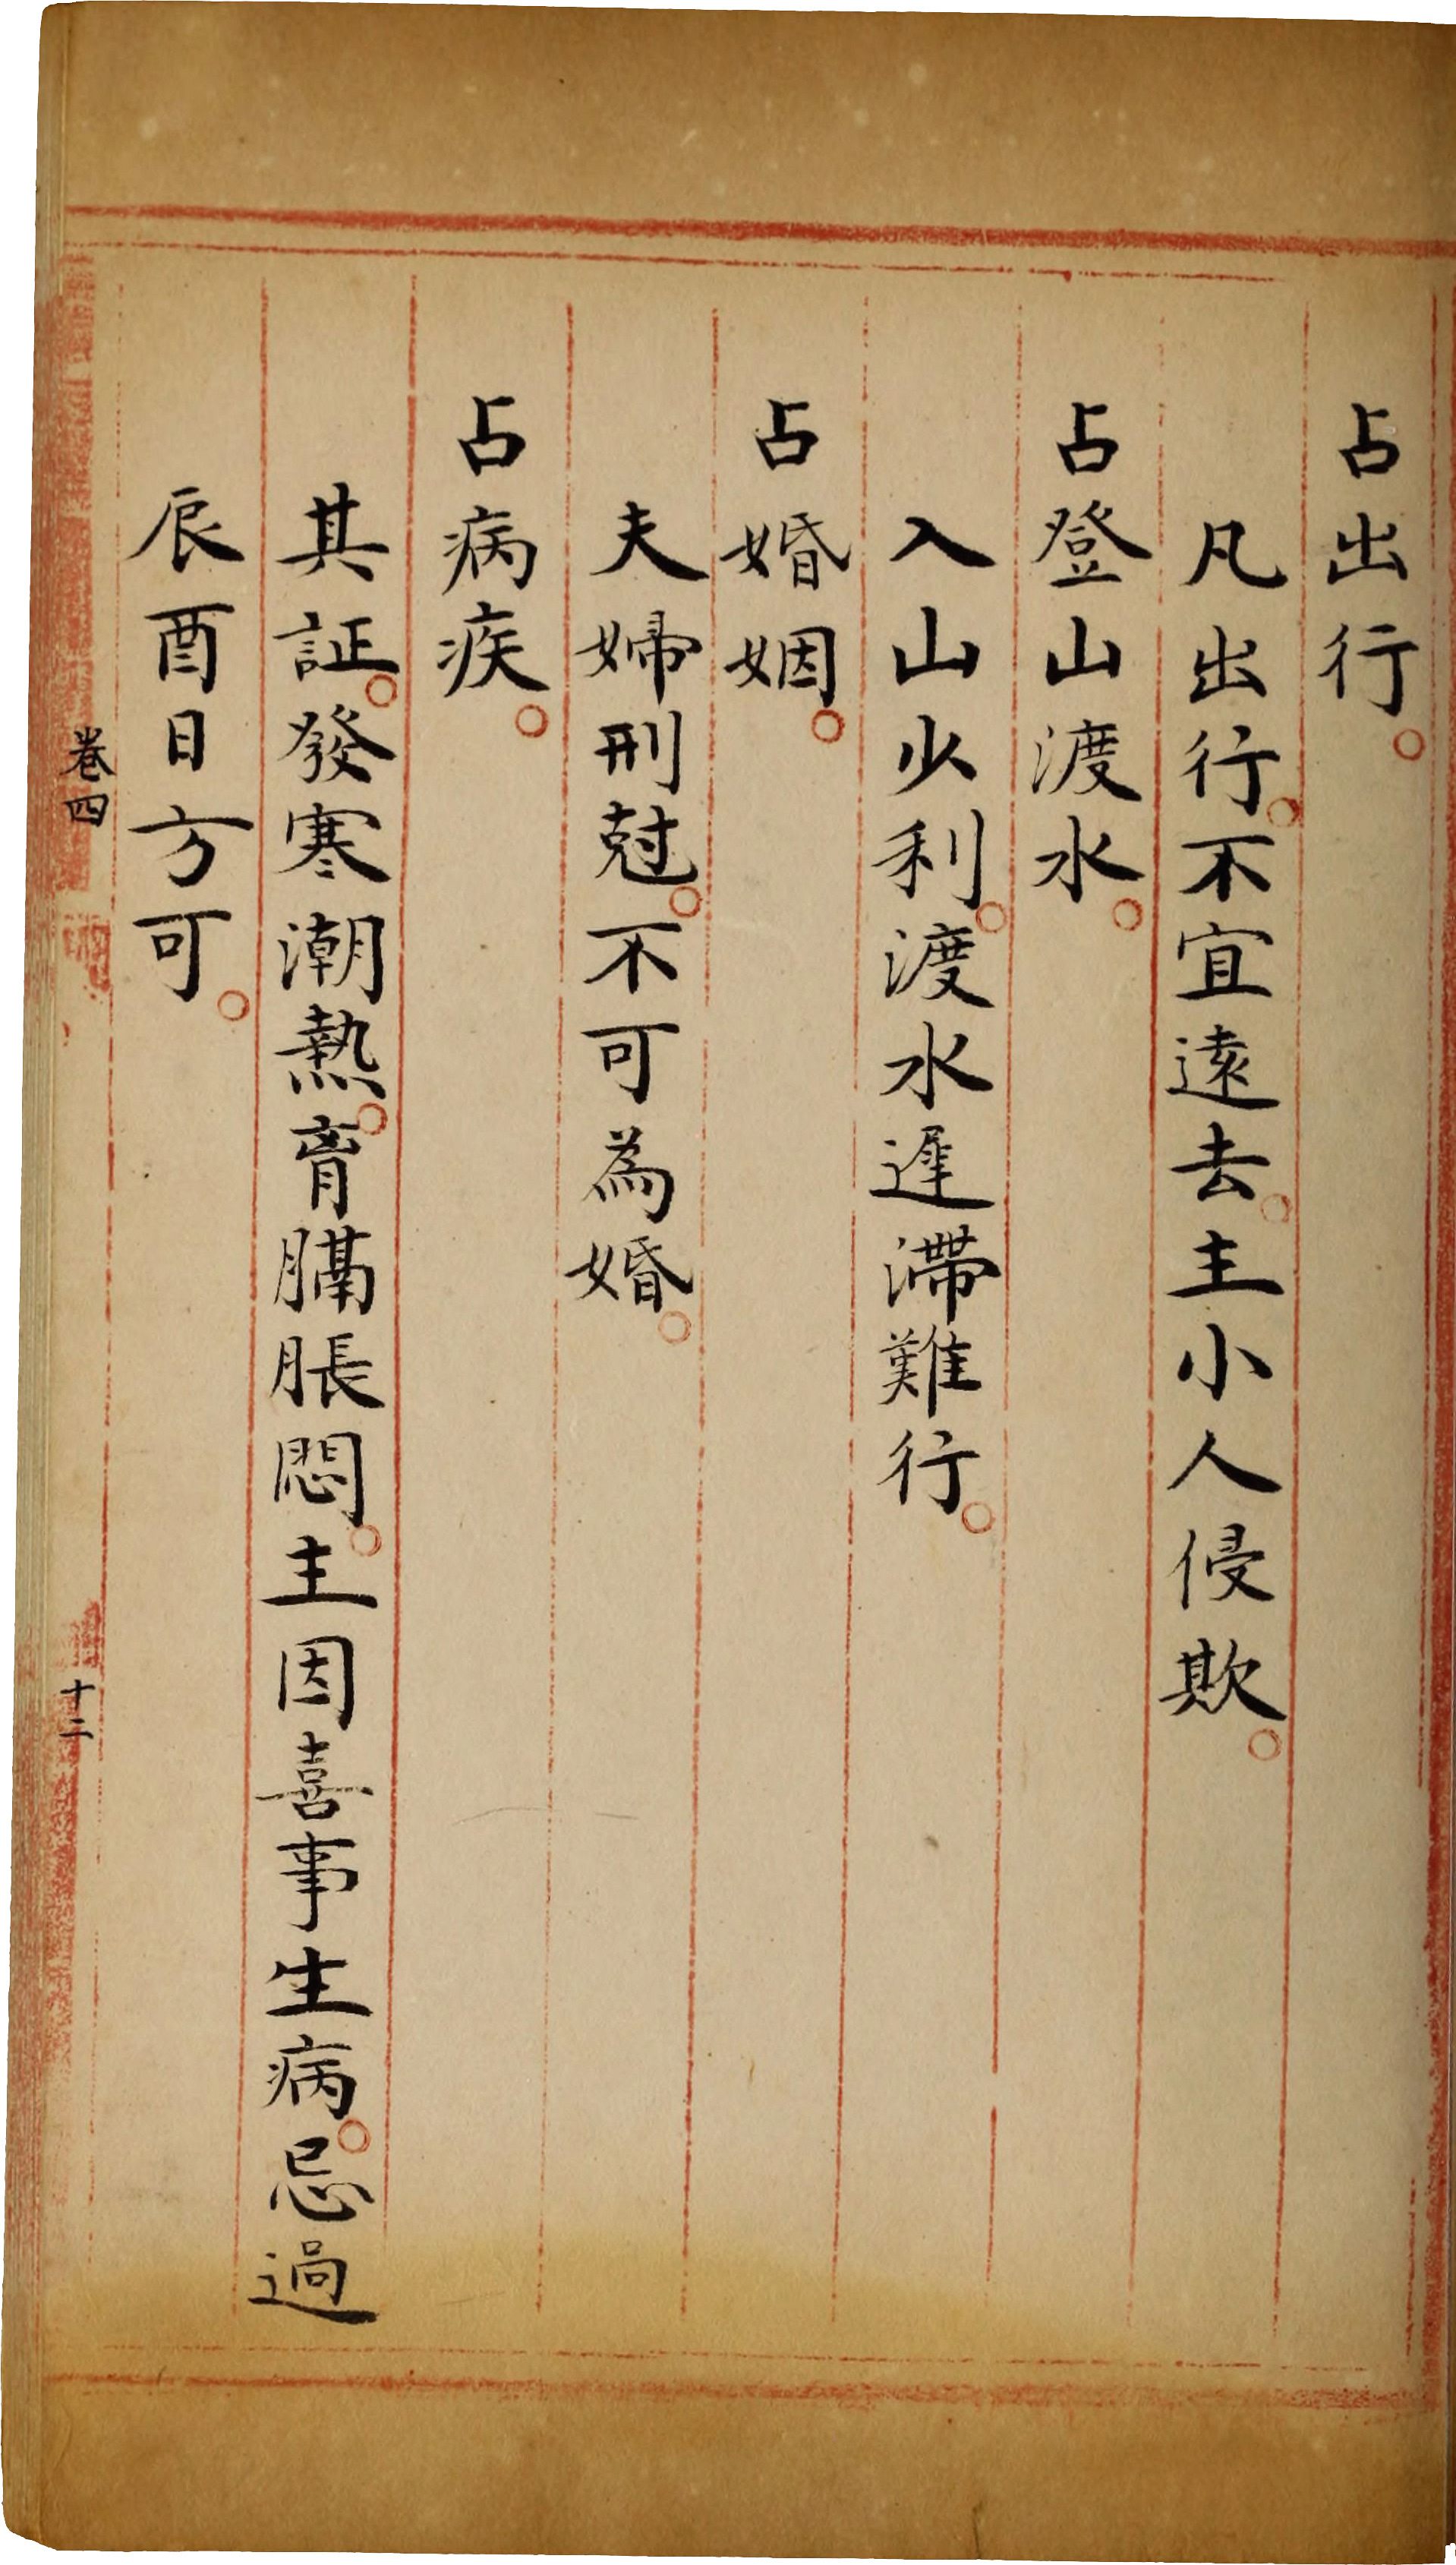 占出行。
凡出行。不宜遠去。主小人侵欺。
占登山渡水。
入山少利。渡水遲滯難行。
占婚姻。
夫婦刑尅。不可為婚。
占病疾。
其証。發寒潮熱。胷膈脹悶。主因喜事生病。忌過
辰酉日方可。
卷四
十二